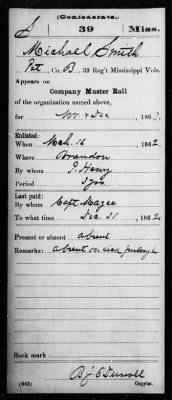 (Confederate.)
S 39 Miss.
Michael Smith
Pvt, Co. B, 39 Reg't Mississippi Vols.
Appears on
Company Muster Roll
of the organization named above,
for Nov & Dec, 1863.
Enlisted:
When Mch. 16, 1862.
Where Brandon
By whom J. Henry
Period 3 yrs
Last paid:
By whom Capt. Magee
To what time Dec. 31, 1862.
Present or absent absent
Remarks: absent on sick furlough
Book mark:
(642)
Copyist.